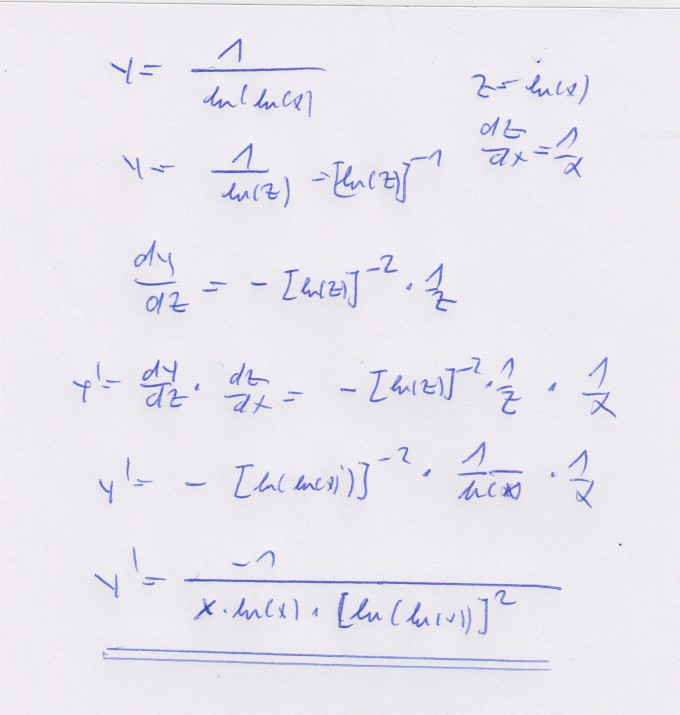 y = 1/ln(ln(x)   z = ln(x)
dz/dx = 1/x
y = 1/ln(z) = [ln(z)]^-1
dy/dz = - [ln(z)]^-2 · 1/z
y' = dy/dz · dz/dx = - [ln(z)]^-2 · 1/z · 1/x
y' = - [ln(ln(x))]^-2 · 1/ln(x) · 1/x
y' = -1/x·ln(x)·[ln(ln(x))]^2